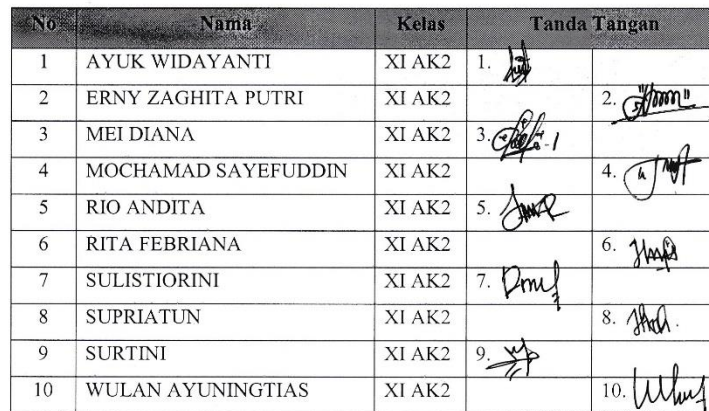 No Nama Kelas Tanda Tangan
1 AYUK WIDAYANTI XI AK2 1.
2 ERNY ZAGHITA PUTRI XI AK2 2.
3 MEI DIANA XI AK2 3.
4 MOCHAMAD SAYEFUDDIN XI AK2 4.
5 RIO ANDITA XI AK2 5.
6 RITA FEBRIANA XI AK2 6.
7 SULISTIORINI XI AK2 7.
8 SUPRIATUN XI AK2 8.
9 SURTINI XI AK2 9.
10 WULAN AYUNINGTIAS XI AK2 10.